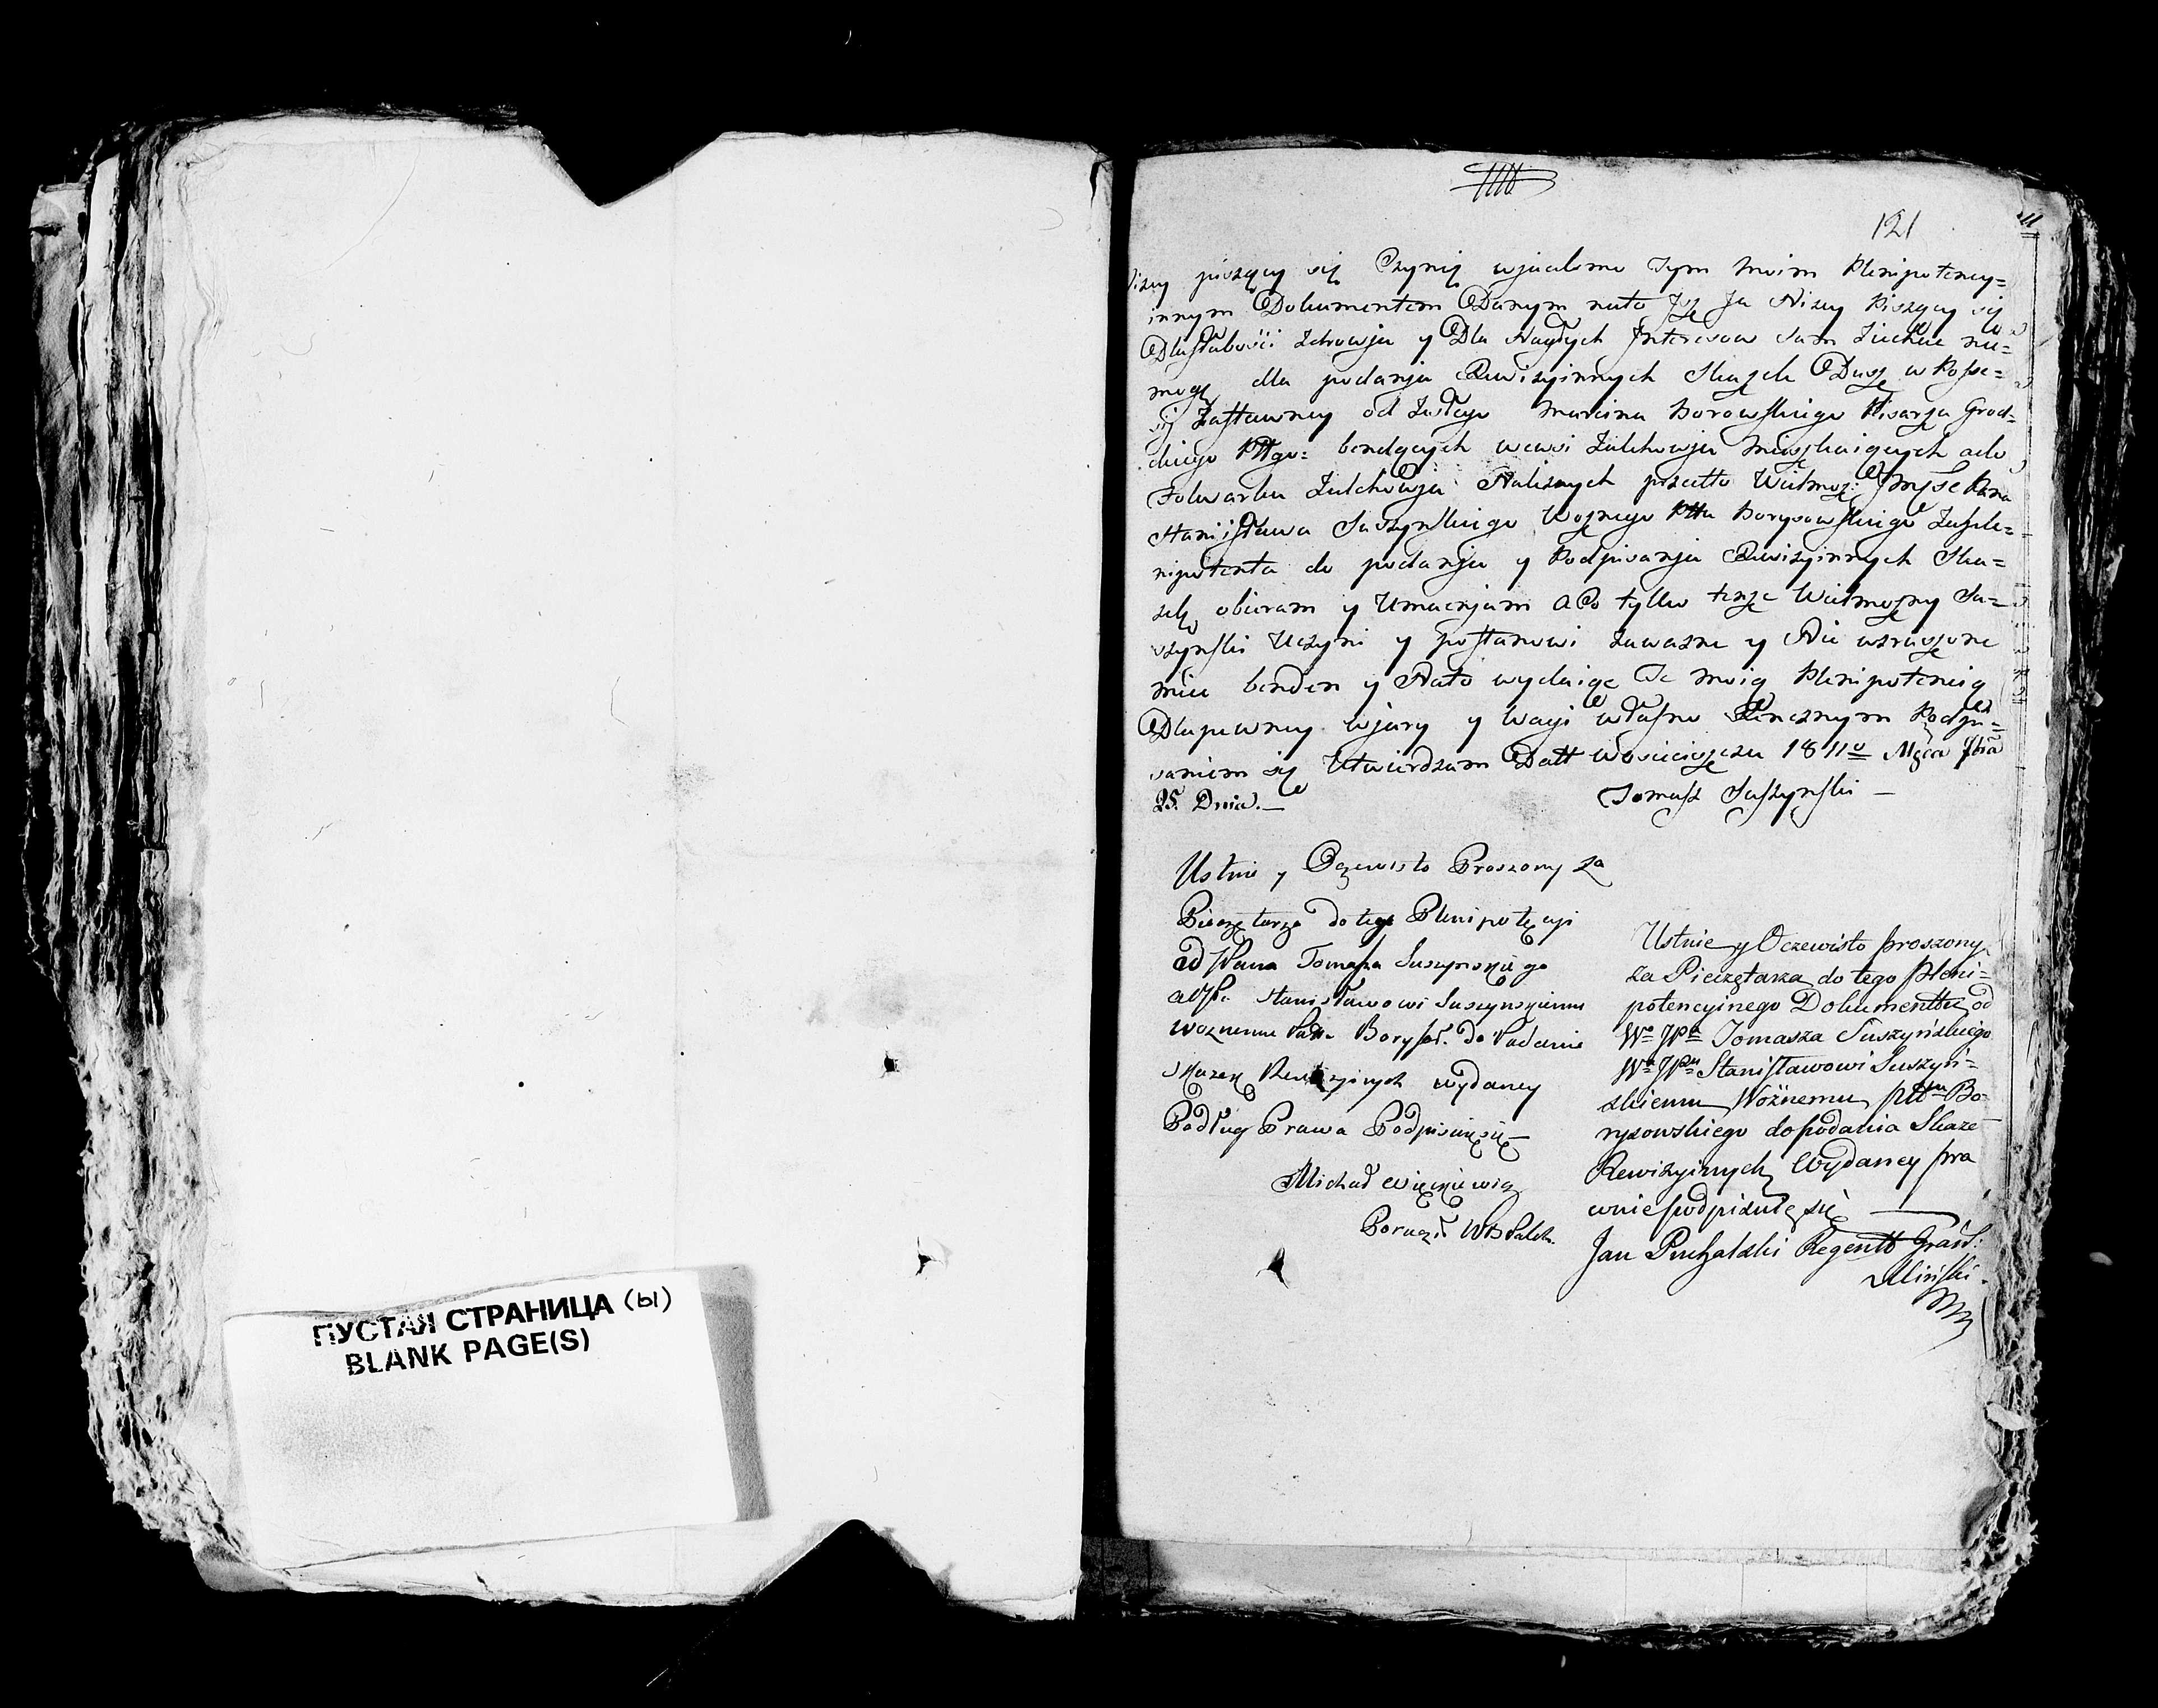 ПУСТАЯ СТРАНИЦА (ы)
BLANK PAGE(S)
121
piszący się Czynię wjadomo tym moim Plenipotency=
innym Dokumentem Danym nato Jż Ja Niżey Piszący się
Dlasłabości Zdrowja y Dla Nagłych Interesow sam Ziechać nie=
mogę dla podanja Rewizyinnych Skazek Dusz w Posse=
sij Zastawney od Marcina Borowskiego Pisarza Grod=
skiego Pttgo: bendących wewsi Zulchowju Mieszkaiących ado
Folwarku Zulchowja Nalıżnych przetto Wielmoż:
Stanisława Suszynskiego Woznego Pttu Borysowskiego Zaple=
nipotenta do podanja y Podpisanja Rewizyinnych Ska=
zek obieram y Umacnjam a Co tylko tenże Wielmożny Su=
szynski Uczyni y postanowi zaważne y Nie wzruszone
mieć benden y Nato wydaiąc Te moią Plenipotencią
Dlapewney wjary y wagi własno Rencznym Podpi=
saniem się Utwierdzam Datt 1811o Mca
25. Dnia.—
Tomasz Suszynski —
Ustnie y Oczewisto Proszony za
Pieczętarza do tego Plenipotęcyi
od Pana Tomasza Suszynskiego
Stanisławowi Suszynskiemu
Woznemu Borysow. do Padania
Skazek Rewizyinych wydaney
Podług Prawa Podpisuię się—
Michał
Ustnie y Oczewisto proszony
za Pieczętarza do tego Pleni=
potencyinego Dokumenttu od
Wo JPa Tomasza Suszyńskiego
Wo JPu Stanisławowi Suszyń=
skiemu Woźnemu pttu Bo=
rysowskiego do podania Skaze
Rewizyinych Wydaney pra
wnie podpisuię się —
Jan Puchalski Regentt